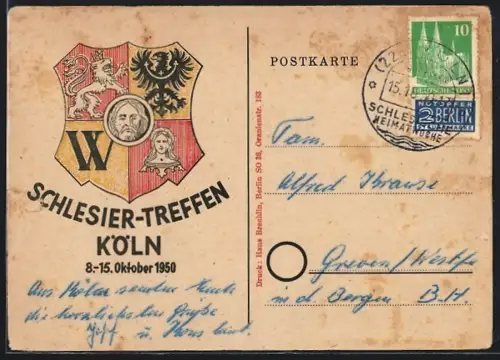 W
SCHLESIER-TREFFEN
KÖLN
8.-15. Oktober 1950
Aus Köln senden Euch
die herzlichsten Grüße
u.
POSTKARTE
Druck: Hans Brechlin, Berlin SO 36, Oranienstr. 183
10
DEUTSCHE POST
NOTOPFER
2 BERLIN
STEUERMARKE
(22
15.
SCHLES
HEIMAT
Fam.
Alfred Krause
Greven/Westf.
in d. Bergen B.H.